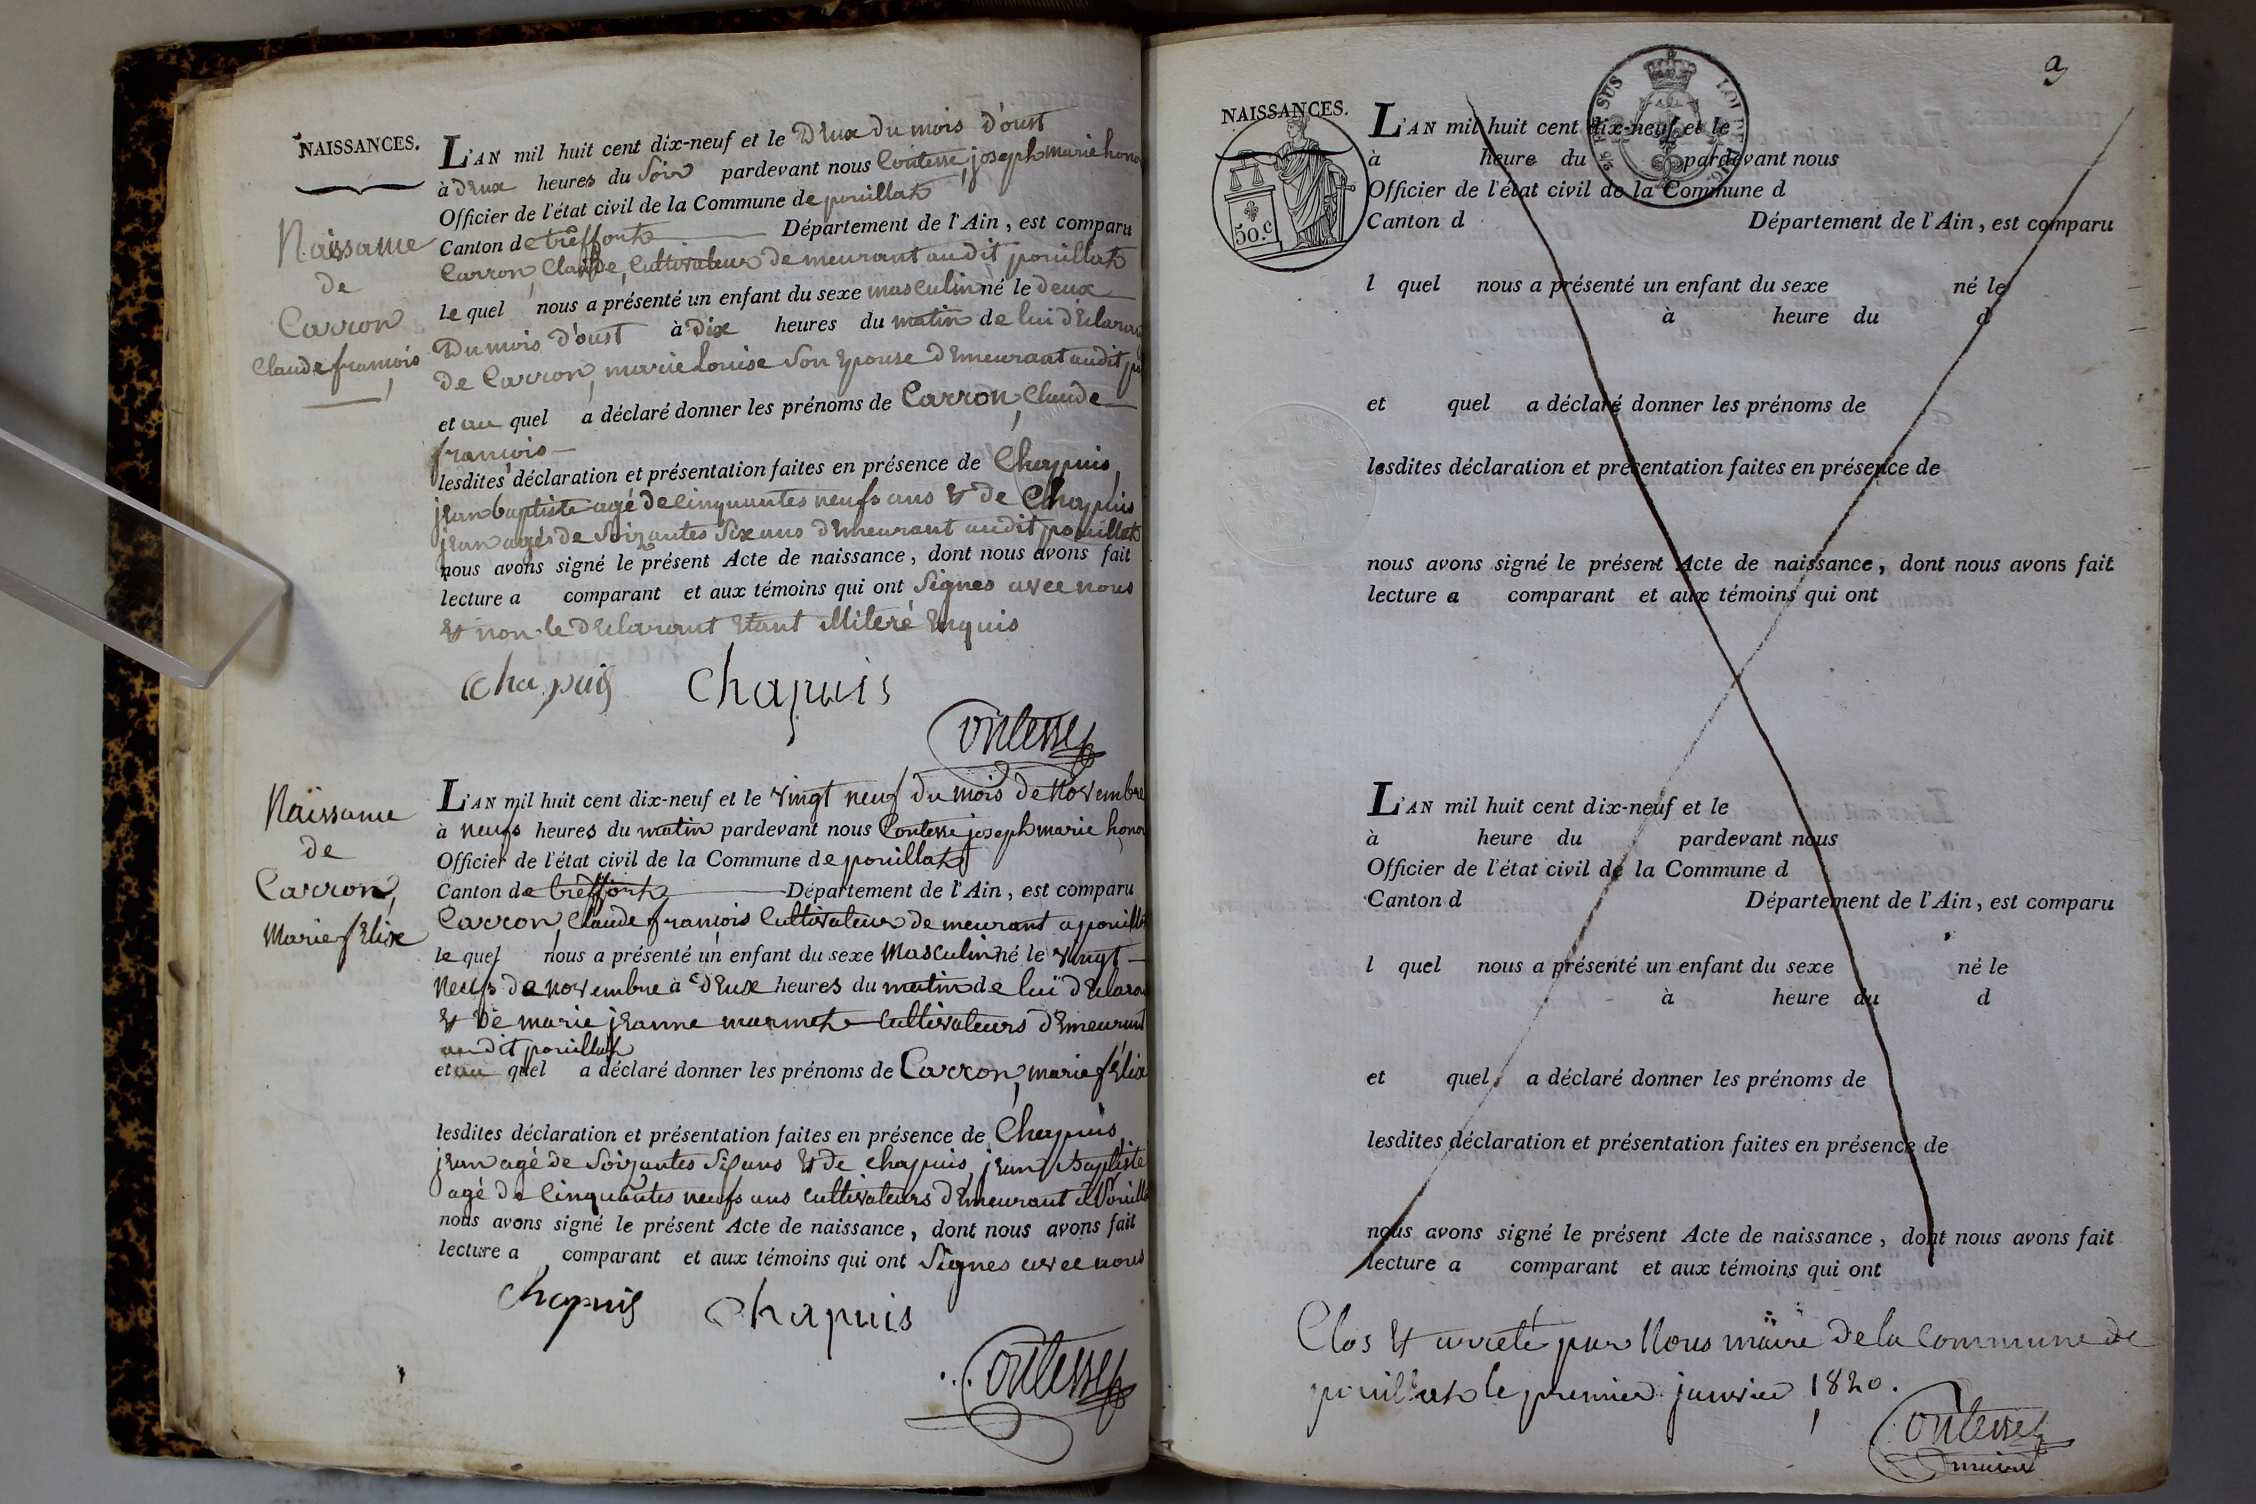 NAISSANCES.
L'AN mil huit cent dix-neuf et le Deux du mois D'oust
à Deux heures du Soir pardevant nous Contesse, joseph marie hono
Officier de l'état civil de la Commune de pouillat
Canton de treffort Département de l'Ain, est comparu
Carron, Claude, Cultivateur demeurant audit pouillat
le quel nous a présenté un enfant du sexe masculin né le deux
Du mois D'oust à Dix heures du matin de lui Déclarant
de Carron, marie Louise Son Epouse Demeurant audit po
et au quel a déclaré donner les prénoms de Carron, Claude
françois
lesdites déclaration et présentation faites en présence de Chapuis,
jean baptiste agé de cinquantes neufs ans & de Chapuis
jean agés de Soixantes Six ans Demeurant audit pouillat
nous avons signé le présent Acte de naissance, dont nous avons fait
lecture a comparant et aux témoins qui ont Signes avec nous
& non le Déclarant Etant illiteré Enquis
Chapuis Chapuis
Contesse
Naissame
de
Carron
Claude françois
L'AN mil huit cent dix-neuf et le vingt neuf du mois de Novembre
à neufs heures du matin pardevant nous Contesse joseph marie hono
Officier de l'état civil de la Commune de pouillat
Canton de treffort Département de l'Ain, est comparu
Carron, Claude françois Cultivateur demeurant a pouillat
le quel nous a présenté un enfant du sexe Masculin né le vingt
Neufs de novembre à Deux heures du matin de luï Déclarant
& De marie jeanne marmet Cultivateurs Demeurant
audit pouillat
et au quel a déclaré donner les prénoms de Carron, marie félix
lesdites déclaration et présentation faites en présence de Chapuis
jean agé de Soixantes Six ans & de chapuis, jean Baptiste
agé de Cinquantes neufs ans cultivateurs Demeurant à Pouilla
nous avons signé le présent Acte de naissance, dont nous avons fait
lecture a comparant et aux témoins qui ont Signes avec nous
Chapuis Chapuis
Contesse
Naissame
de
Carron,
Marie félix
NAISSANCES.
50.c
L'AN mil huit cent dix-neuf et le
à heure du pardevant nous
Officier de l'état civil de la Commune d
Canton d Département de l'Ain, est comparu
l quel nous a présenté un enfant du sexe né le
à heure du d
et quel a déclaré donner les prénoms de
lesdites déclaration et présentation faites en présence de
nous avons signé le présent Acte de naissance, dont nous avons fait
lecture a comparant et aux témoins qui ont
L'AN mil huit cent dix-neuf et le
à heure du pardevant nous
Officier de l'état civil de la Commune d
Canton d Département de l'Ain, est comparu
l quel nous a présenté un enfant du sexe né le
à heure du d
et quel a déclaré donner les prénoms de
lesdites déclaration et présentation faites en présence de
nous avons signé le présent Acte de naissance, dont nous avons fait
lecture a comparant et aux témoins qui ont
Clos & arreté par Nous maire de la Commune de
pouillat le premier janvier 1820.
Contesse
maire